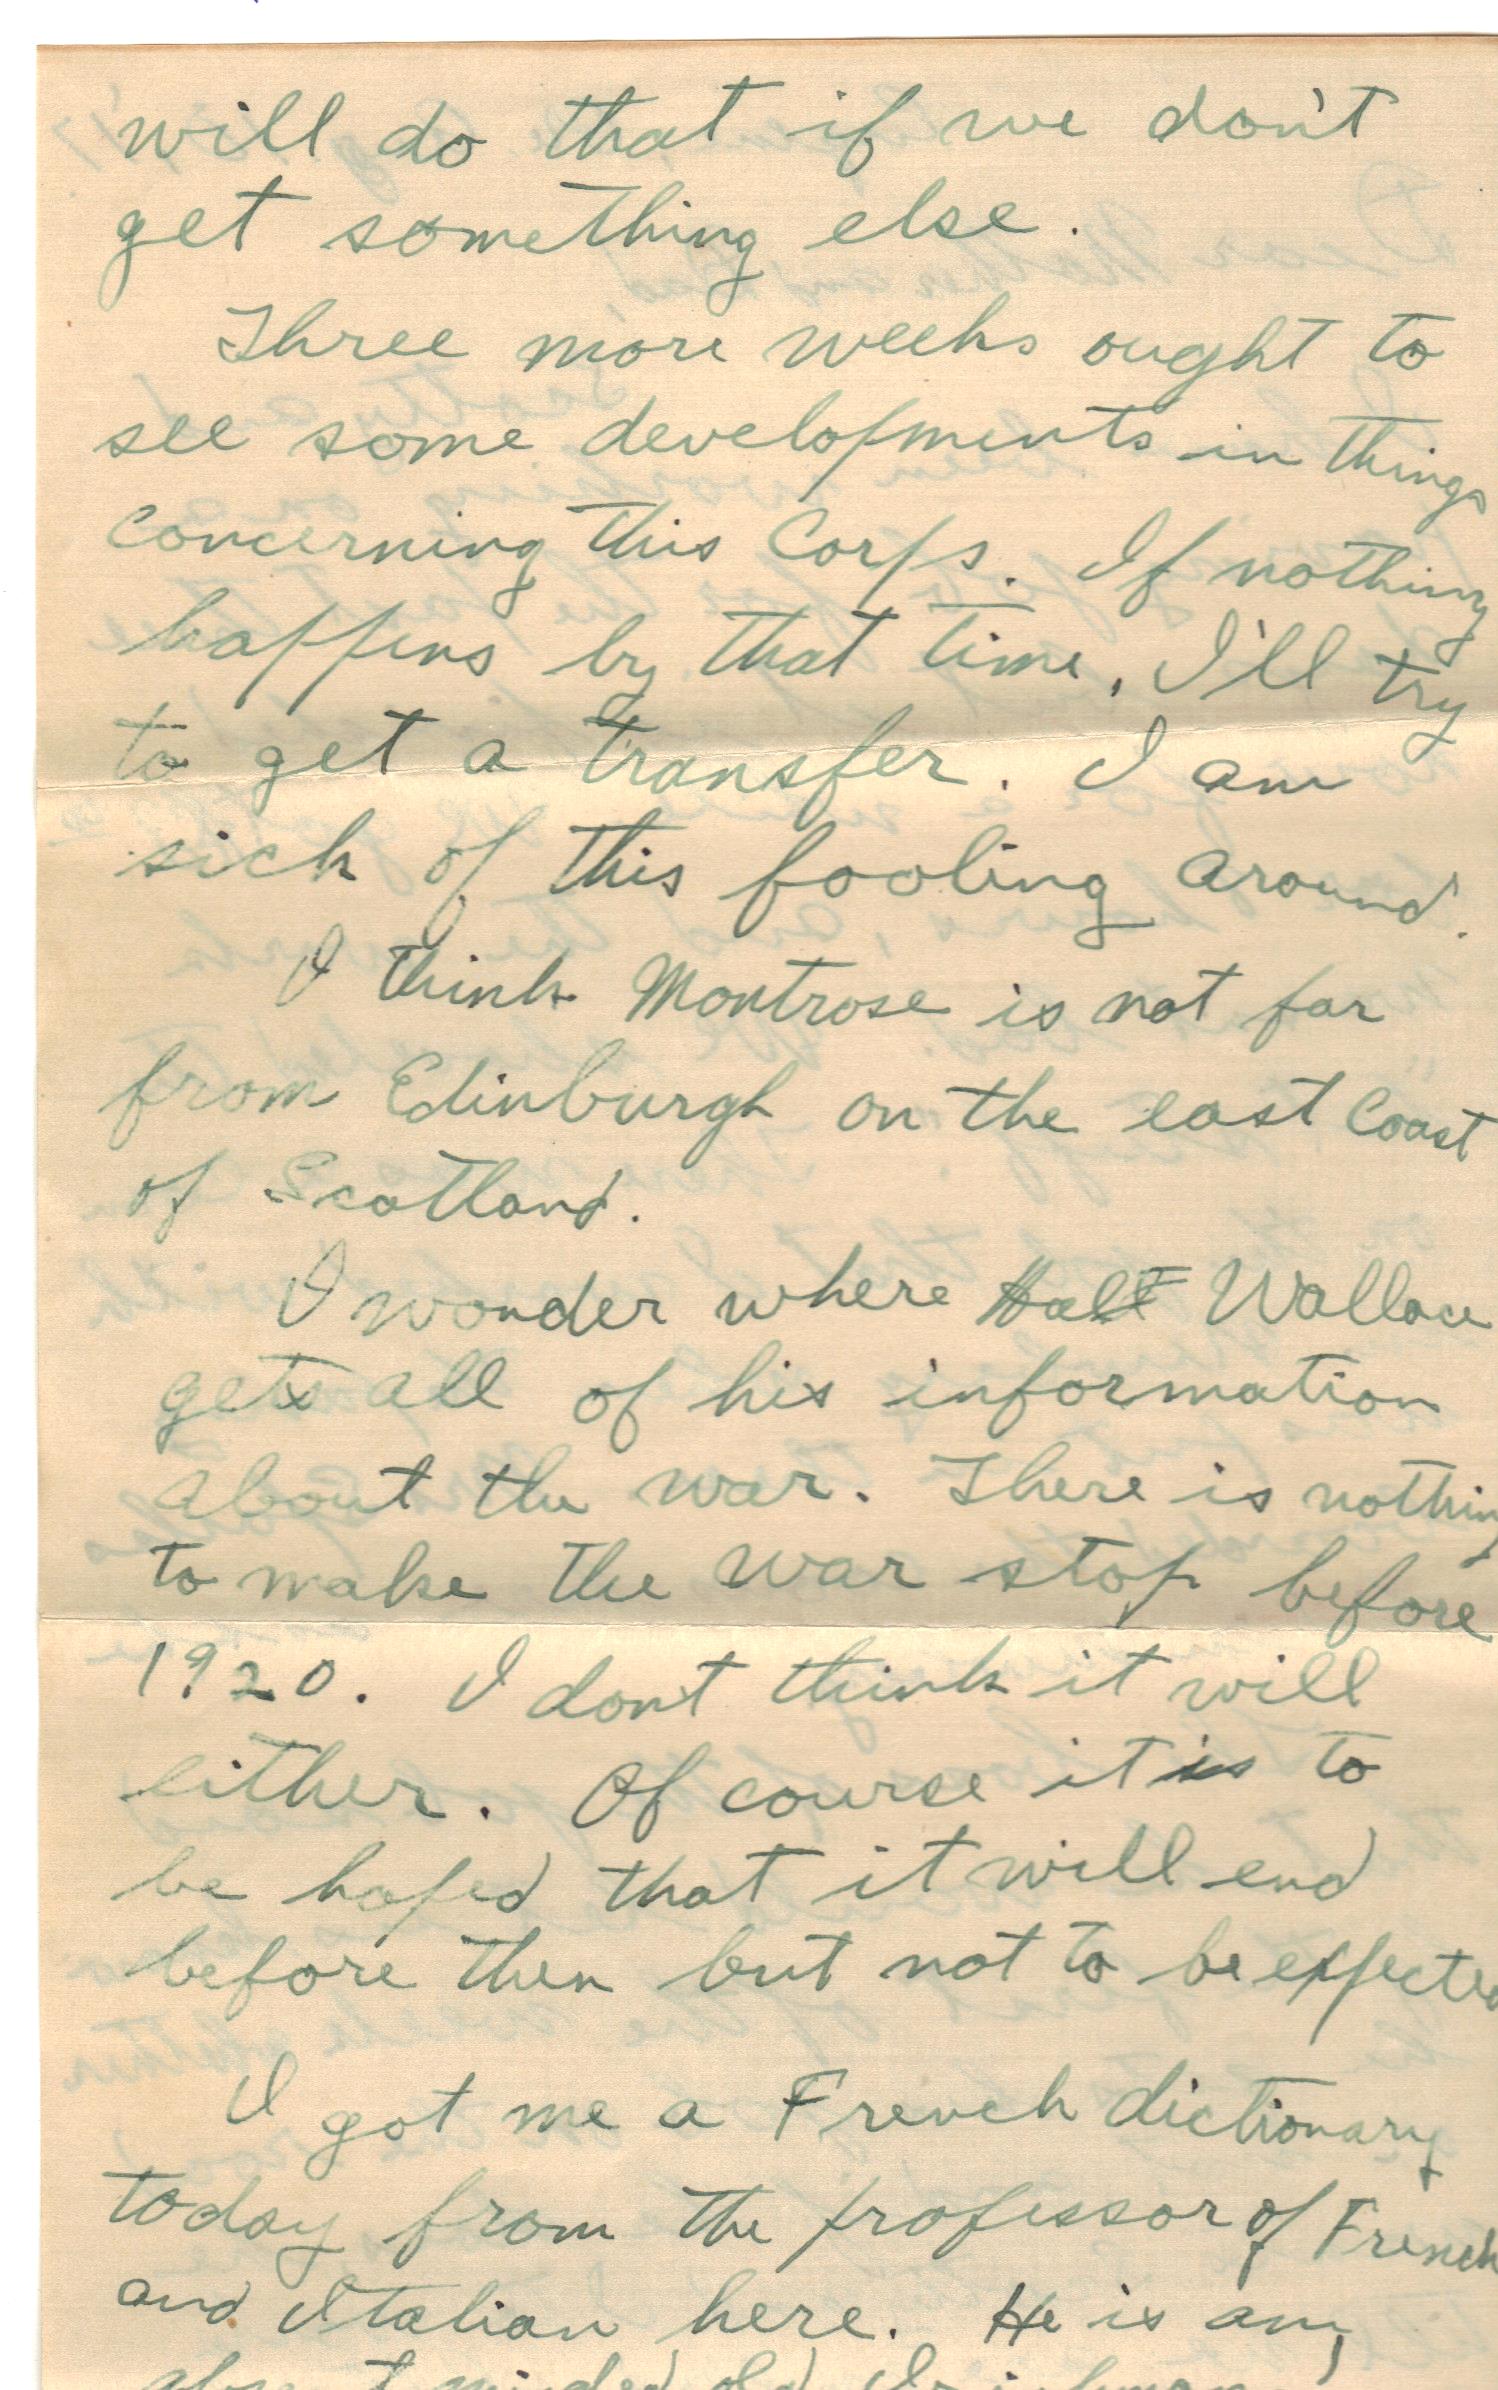 will do that if we don't
get something else.
Three more weeks ought to
see some developments in things
concerning this Corps. If nothing
happens by that time, I'll try
to get a transfer. I am
sick of this fooling around.
I think Montrose is not far
from Edinburgh on the east Coast
of Scotland.
I wonder where Walt Wallace
gets all of his information
about the war. There is nothing
to make the war stop before
1920. I don't think it will
either. Of course it is to
be hoped that it will end
before then but not to be expected
I got me a French dictionary
today from the professor of French
and Italian here. He is an,
absent minded old Irishman